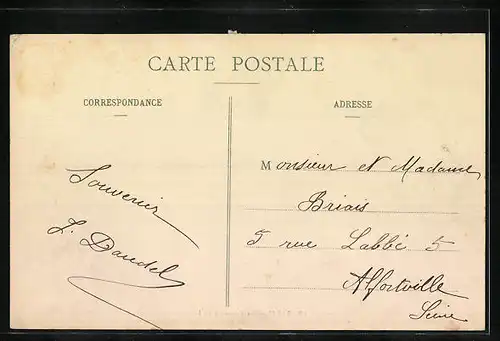 CARTE POSTALE
CORRESPONDANCE
ADRESSE
Souvenir
Monsieur et Madame
Briais
5 rue Labbé 5
Alfortville
Seine